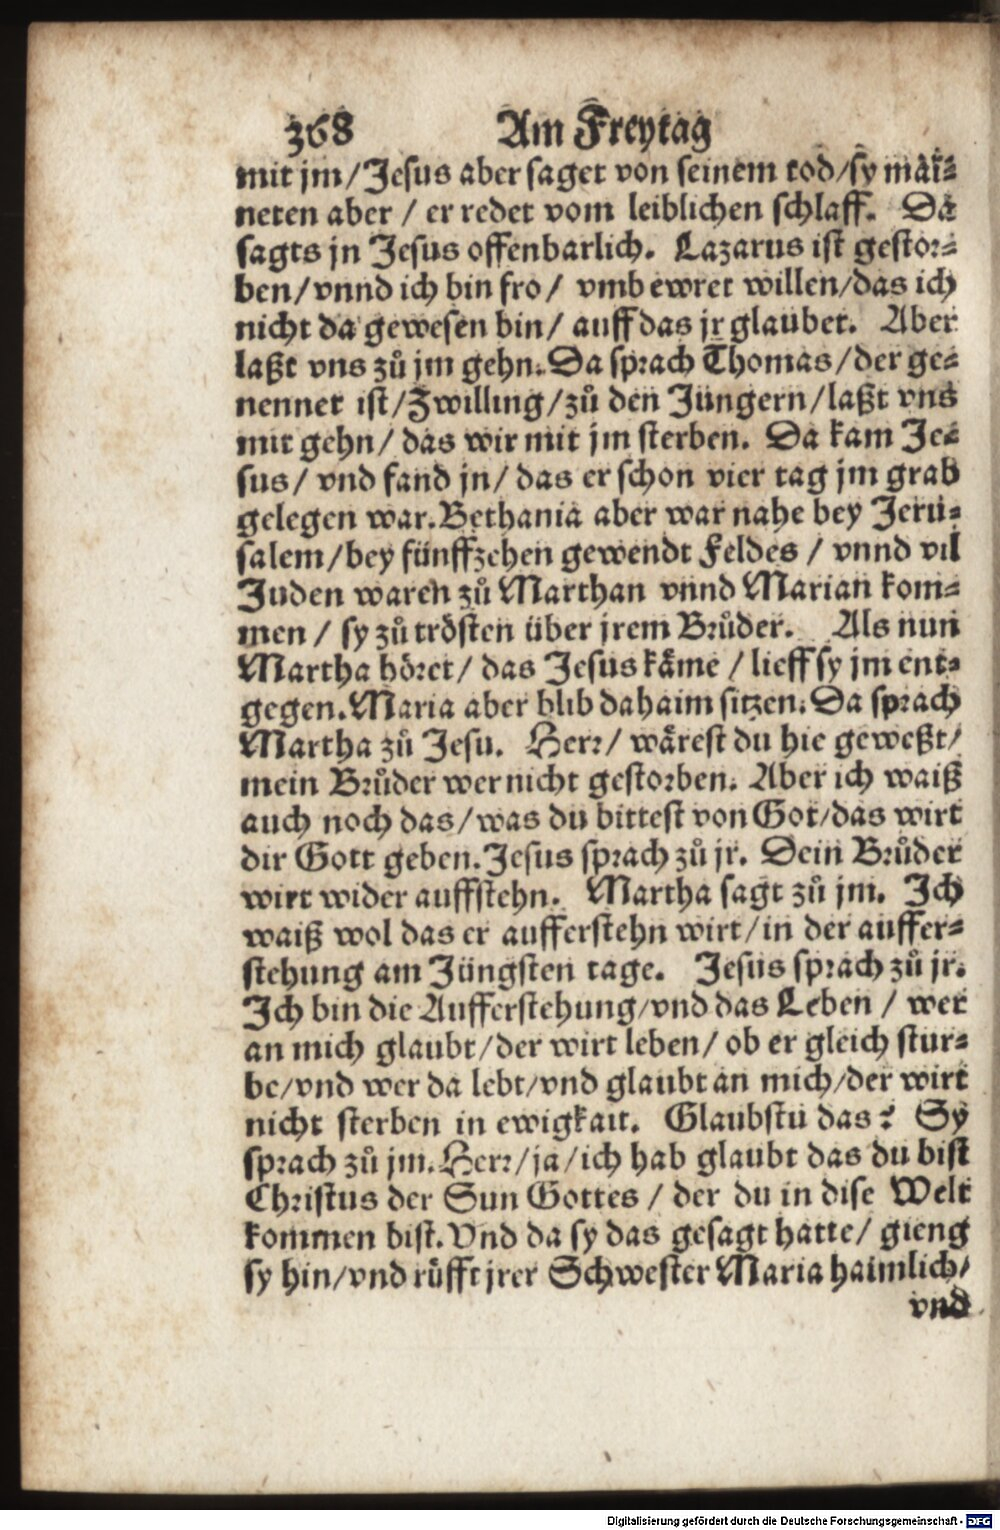 368 Am Freytag
mit jm/Jesus aber saget von seinem tod/sy mai-
neten aber / er redet vom leiblichen schlaff. Da
sagts jn Jesus offenbarlich. Lazarus ist gestor-
ben/vnnd ich bin fro / vmb ewret willen/das ich
nicht da gewesen bin/ auff das jr glaubet. Aber
laßt vns zů jm gehn. Da sprach Thomas/der ge-
nennet ist/Zwilling/zů den Jüngern/laßt vns
mit gehn/ das wir mit jm sterben. Da kam Je-
sus/ vnd fand jn/ das er schon vier tag jm grab
gelegen war. Bethania aber war nahe bey Jeru-
salem/bey fünffzehen gewendt Feldes / vnnd vil
Juden waren zů Marthan vnnd Marian kom-
men / sy zů trösten über jrem Brůder. Als nun
Martha höret/ das Jesus käme / lieff sy jm ent-
gegen. Maria aber blib dahaim sitzen. Da sprach
Martha zů Jesu. Herr/ wärest du hie geweßt/
mein Brůder wer nicht gestorben. Aber ich waiß
auch noch das/was du bittest von Got/das wirt
dir Gott geben. Jesus sprach zů jr. Dein Brůder
wirt wider auffstehn. Martha sagt zů jm. Ich
waiß wol das er aufferstehn wirt/in der auffer-
stehung am Jüngsten tage. Jesus sprach zů jr.
Ich bin die Aufferstehung/vnd das Leben / wer
an mich glaubt/der wirt leben/ ob er gleich stur-
be/vnd wer da lebt/vnd glaubt an mich/der wirt
nicht sterben in ewigkait. Glaubstu das? Sy
sprach zů jm. Herr/ja/ich hab glaubt das du bist
Christus der Sun Gottes / der du in dise Welt
kommen bist. Vnd da sy das gesagt hatte/ gieng
sy hin/vnd růfft jrer Schwester Maria haimlich/
vnd
Digitalisierung gefördert durch die Deutsche Forschungsgemeinschaft - DFG